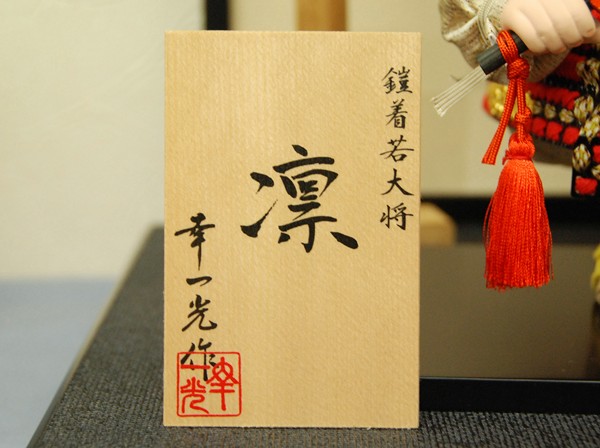 鎧着若大将
凛
幸一光作
幸一光